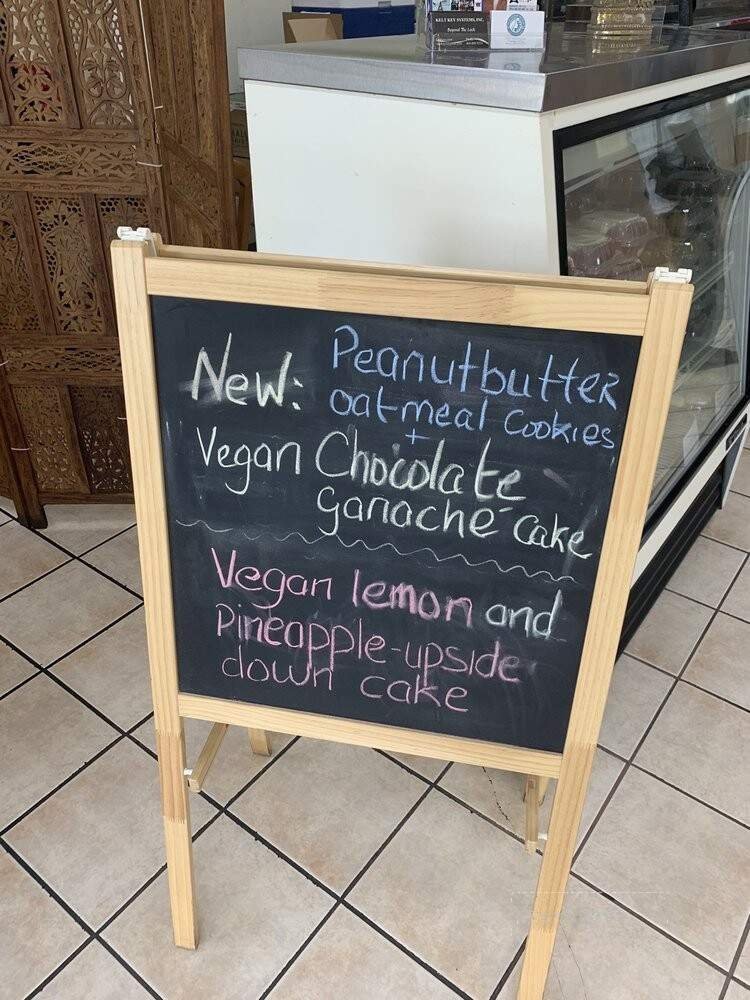 KELT KEY SYSTEMS, INC.
Beyond The Lock
New: Peanutbutter
oatmeal Cookies
+
Vegan Chocolate
ganache cake
Vegan lemon and
pineapple-upside
down cake